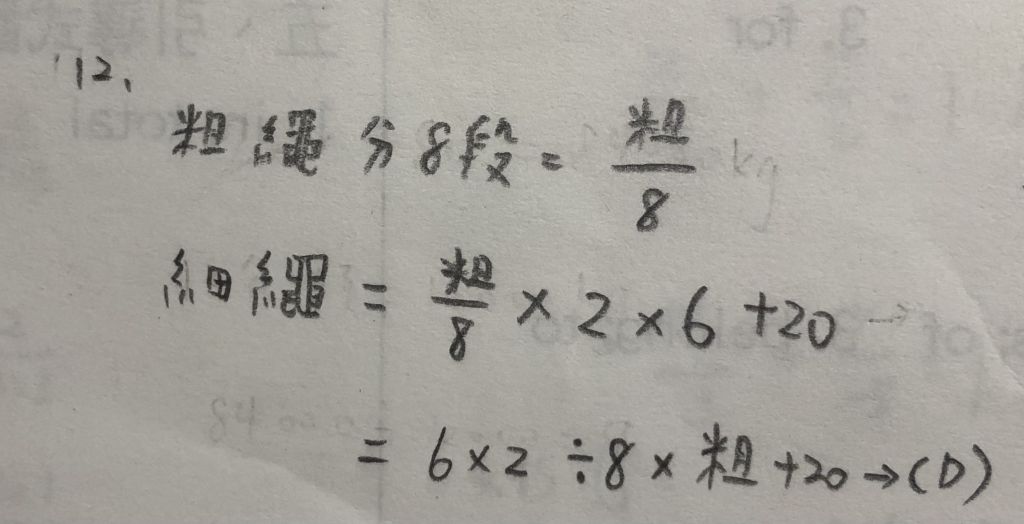 12、
粗繩分8段 = 粗/8
細繩 = 粗/8 × 2 × 6 + 20
= 6 × 2 ÷ 8 × 粗 + 20 → (D)